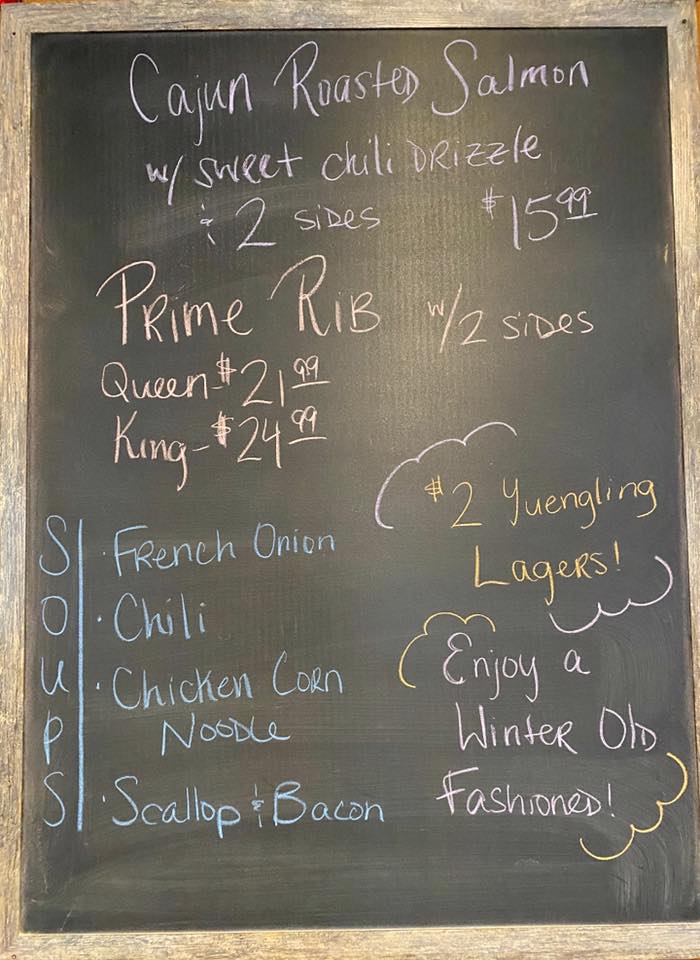 Cajun Roasted Salmon
w/ sweet chili Drizzle
& 2 sides $15.99
Prime Rib w/2 sides
Queen-$21.99
King-$24.99
$2 Yuengling
Lagers!
SOUPS
· French Onion
· Chili
· Chicken Corn
Noodle
· Scallop & Bacon
Enjoy a
Winter Old
Fashioned!